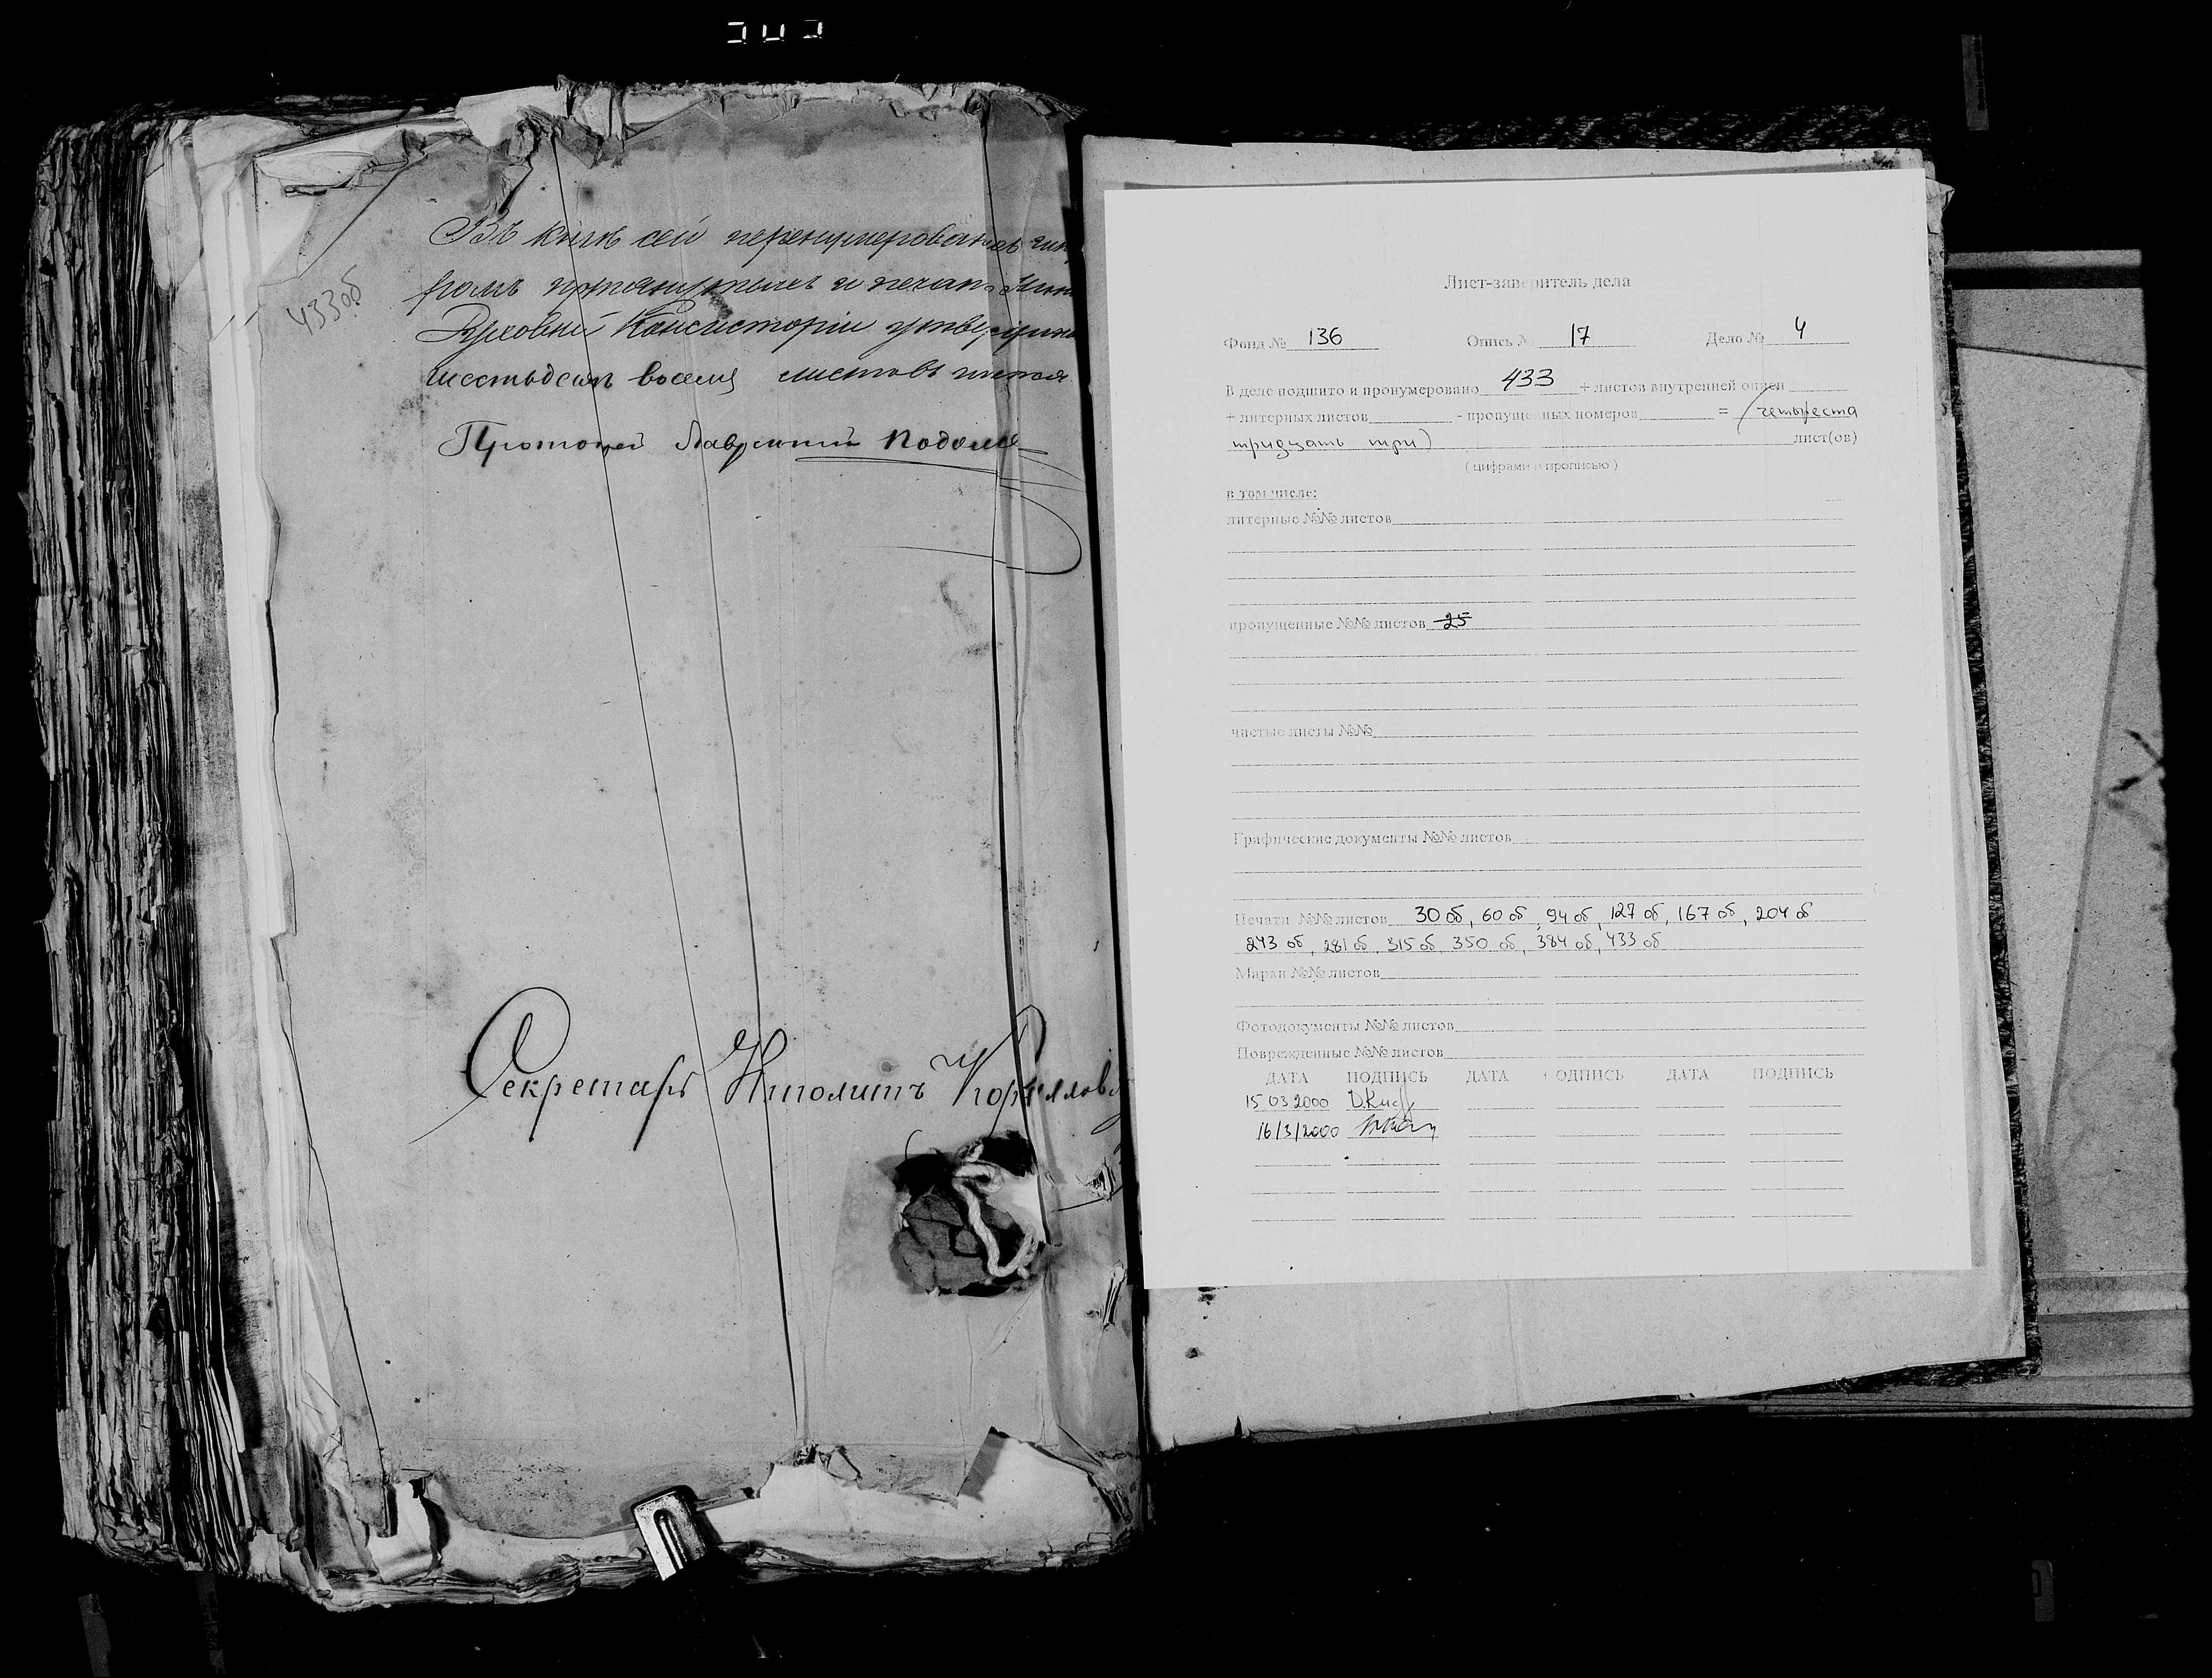 433 об
Въ книгѣ сей перенумерованныхъ
прошнурованныхъ и печатью
Духовной Консисторіи утвержденныхъ
шестьдесят восемь листовъ
Протоіерей Лаврентій
Секретарь Иполитъ
Лист-заверитель дела
Фонд № 136 Опись № 17 Дело № 4
В деле подшито и пронумеровано 433 + листов внутренней описи
+ литерных листов - пропущенных номеров = (четыреста
тридцать три) лист(ов)
( цифрами и прописью )
в том числе:
литерные №№ листов
пропущенные №№ листов 25
чистые листы №№
Графические документы №№ листов
Печати №№ листов 30 об, 60 об, 94 об, 127 об, 167 об, 204 об
243 об, 281 об, 315 об, 350 об, 384 об, 433 об
Марки №№ листов
Фотодокументы №№ листов
Поврежденные №№ листов
ДАТА ПОДПИСЬ ДАТА ПОДПИСЬ ДАТА ПОДПИСЬ
15.03.2000
16/3/2000